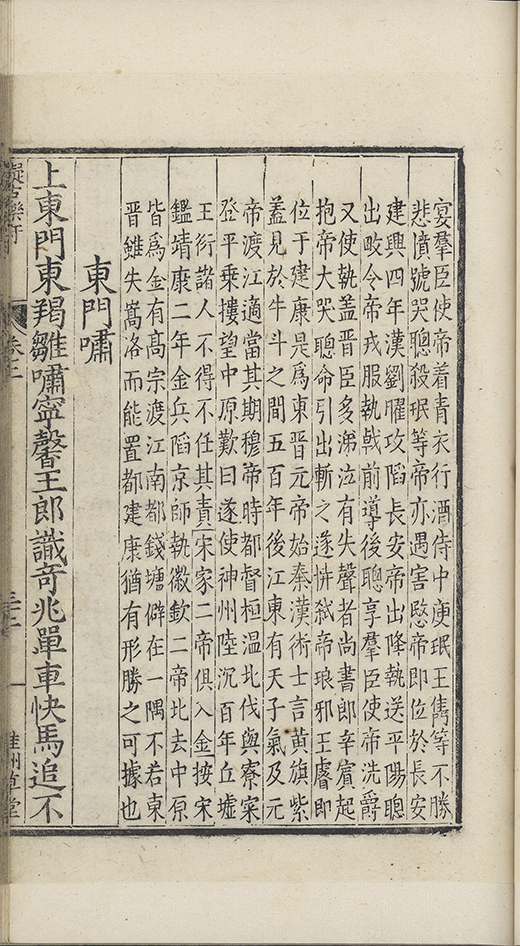 宴羣臣使帝着青衣行酒侍中庾珉王雋等不勝
悲憤號哭聰殺珉等帝亦遇害愍帝即位於長安
建興四年漢劉曜攻陷長安帝出降執送平陽聰
出畋令帝戎服執戟前導後聰享羣臣使帝洗爵
又使執盖晉臣多涕泣有失聲者尚書郎辛賓起
抱帝大哭聰命引出斬之遂倂弑帝琅邪王睿即
位于建康是爲東晉元帝始秦漢術士言黃旗紫
蓋見於牛斗之間五百年後江東有天子氣及元
帝渡江適當其期穆帝時都督桓温北伐與寮寀
登平乘樓望中原歎曰遂使神州陸沉百年丘墟
王衍諸人不得不任其責宋家二帝俱入金按宋
鑑靖康二年金兵陷京師執徽欽二帝北去中原
皆爲金有高宗渡江南都錢塘僻在一隅不若東
晉雖失嵩洛而能置都建康猶有形勝之可據也
東門嘯
上東門東羯雛嘯寧馨王郎識奇兆單車快馬追不